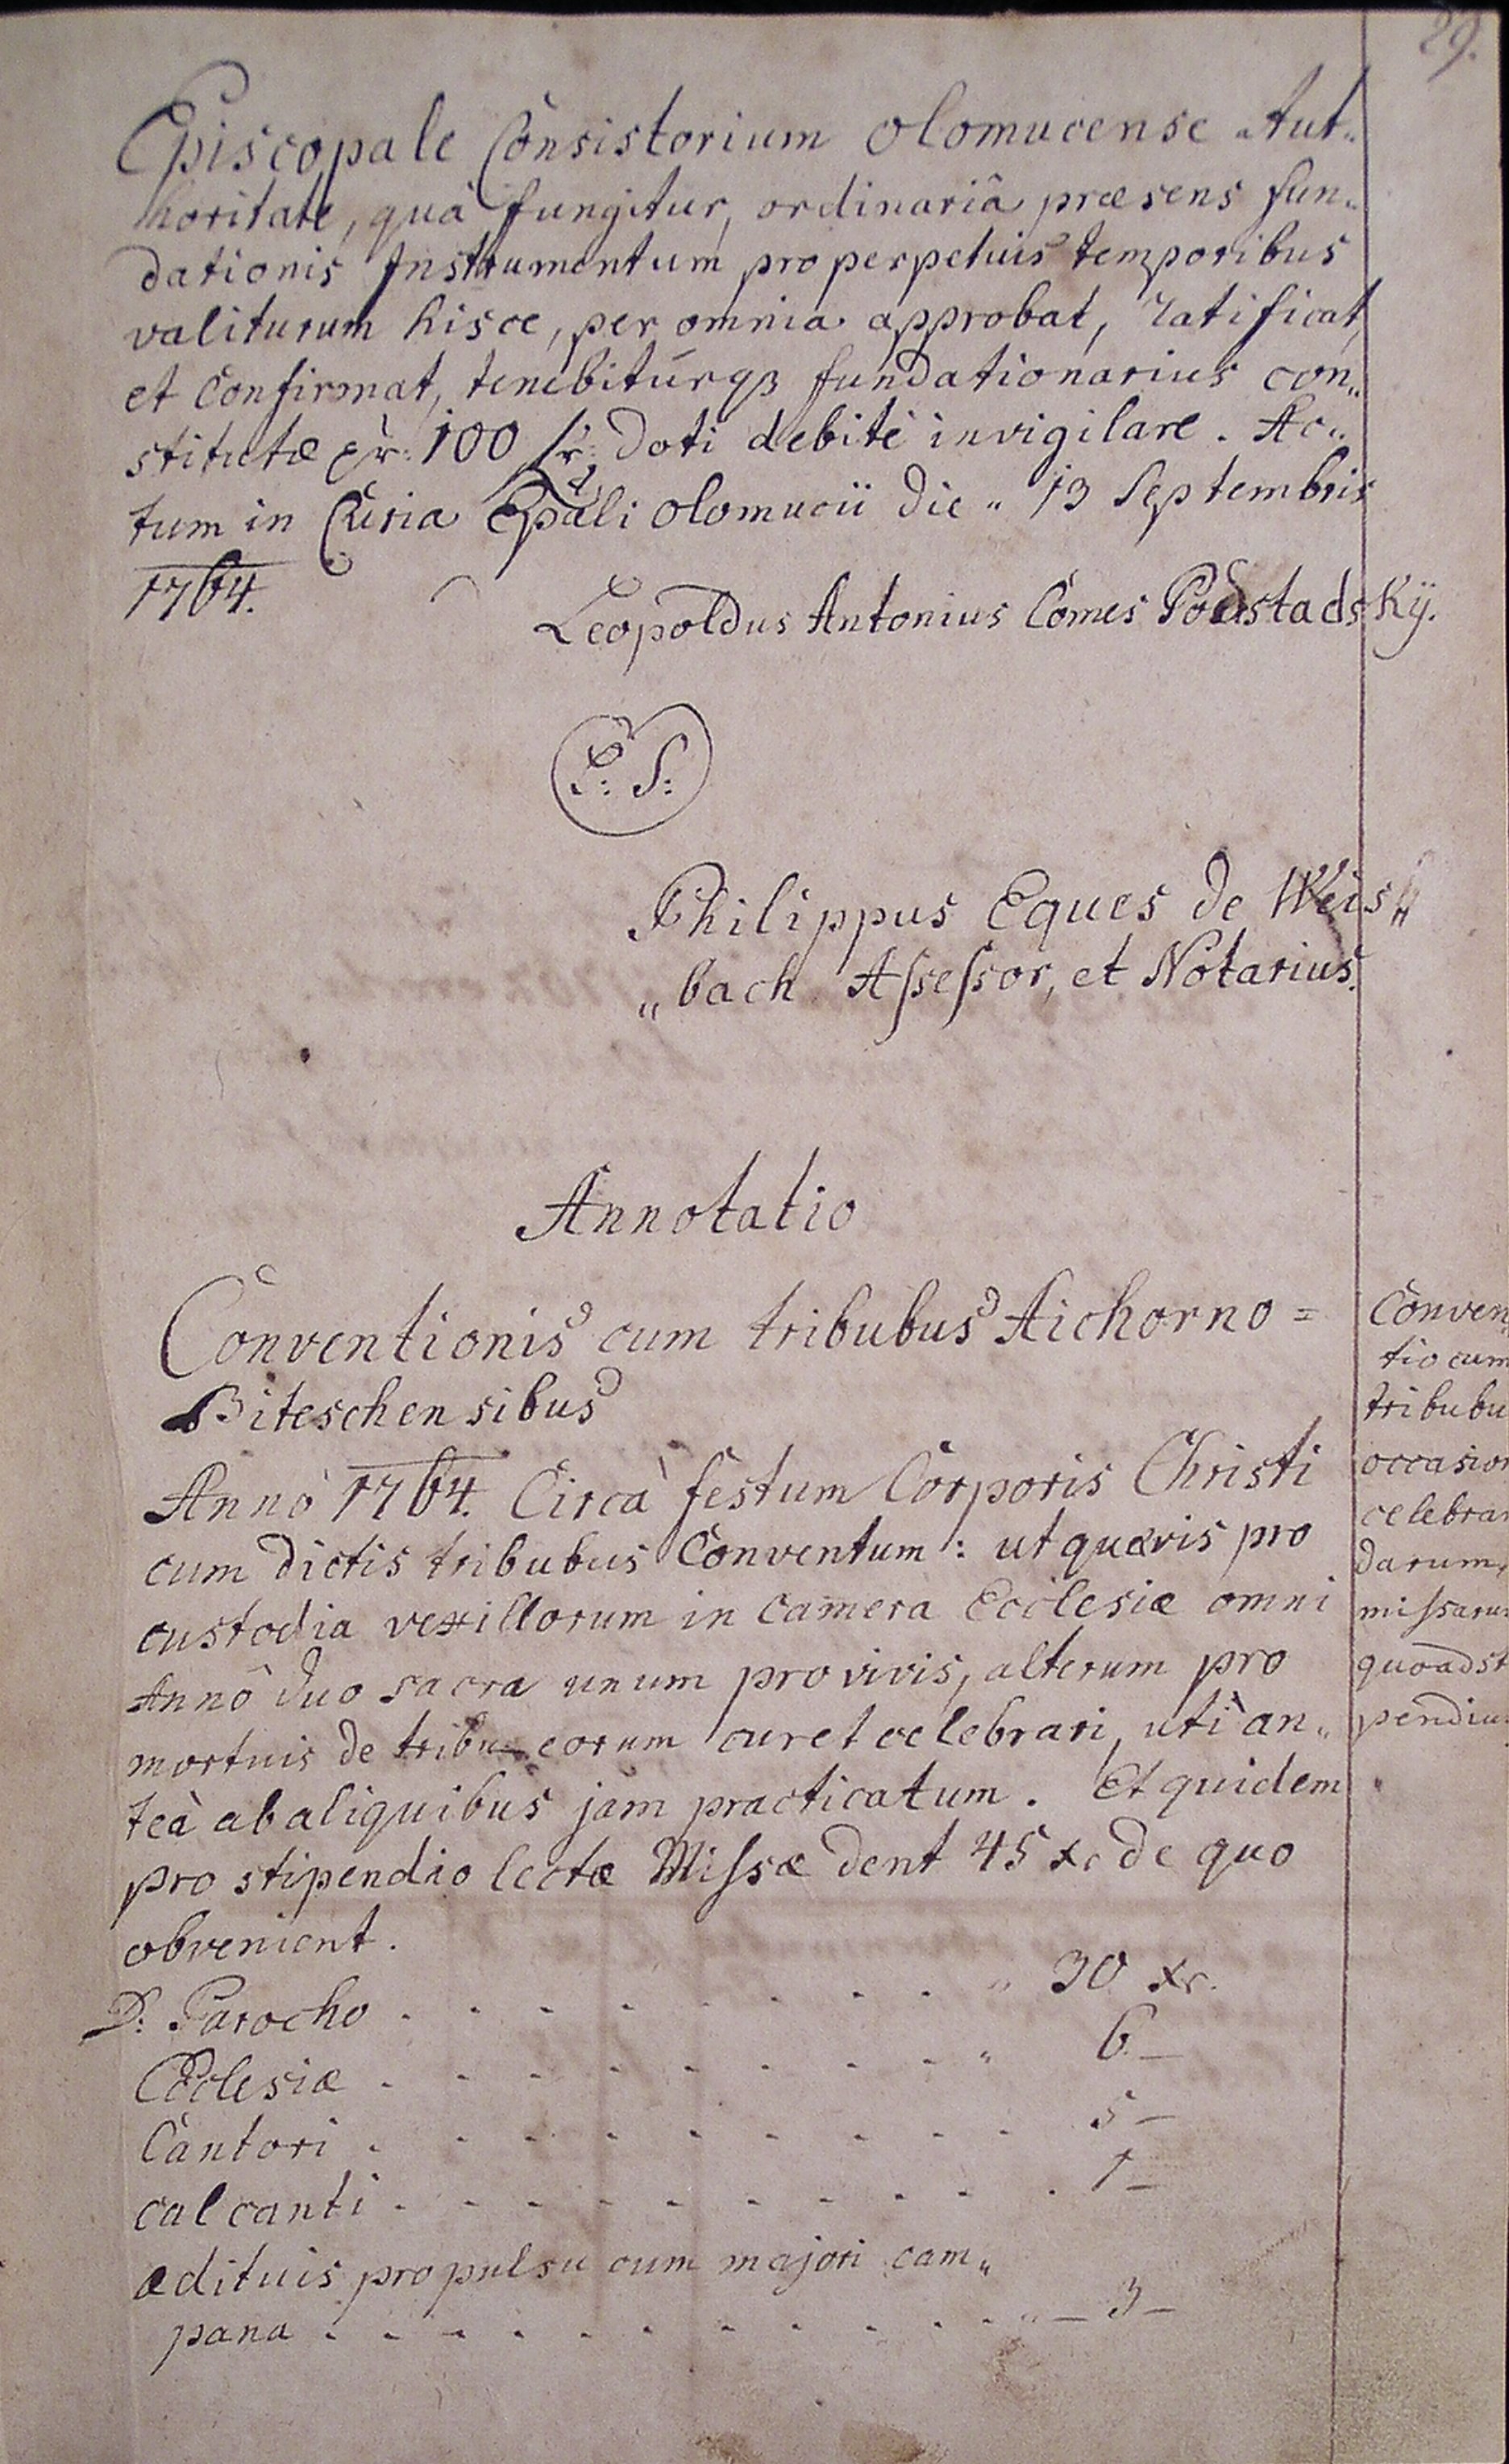 29.
Episcopale Consistorium Olomucense Aut„
horitate, quâ fungitur, ordinariâ præsens fun„
dationis Instrumentum pro perpetuis temporibus
valiturum hisce, per omnia approbat, ratificat,
et Confirmat, tenebiturqꝫ fundationarius con„
stitutæ pr: 100 fr: Doti debitè invigilare. Ac„
tum in Curia Epali Olomucii Die 13 Septembris
1764.
Leopoldus Antonius Comes Podstadsky.
L: S:
Philippus Eques de Weis„
„bach Assessor, et Notarius.
Annotatio
Conventionis cum tribubus Aichorno=
Biteschensibus
Annò 1764. Circà festum Corporis Christi
cum dictis tribubus Conventum: ut quævis pro
custodia vexillorum in Camera Ecclesiæ omni
Annô duo sacra unum pro vivis, alterum pro
mortuis de tribu eorum curet celebrari, uti an„
teà ab aliquibus jam practicatum. Et quidem
pro stipendio lectæ Missæ dent 45 xr de quo
obvenient.
D: Parocho . . . . . . . . „ 30 xr.
Ecclesiæ . . . . . . . . „ 6 –
Cantori . . . . . . . . . 5 –
calcanti . . . . . . . . . 1 –
ædituis pro pulsu cum majori cam„
pana . . . . . . . . . . „ – 3 –
Conven„
tio cum
tribubu
occasion
celebran
darum
missaru
quoad st
pendiu